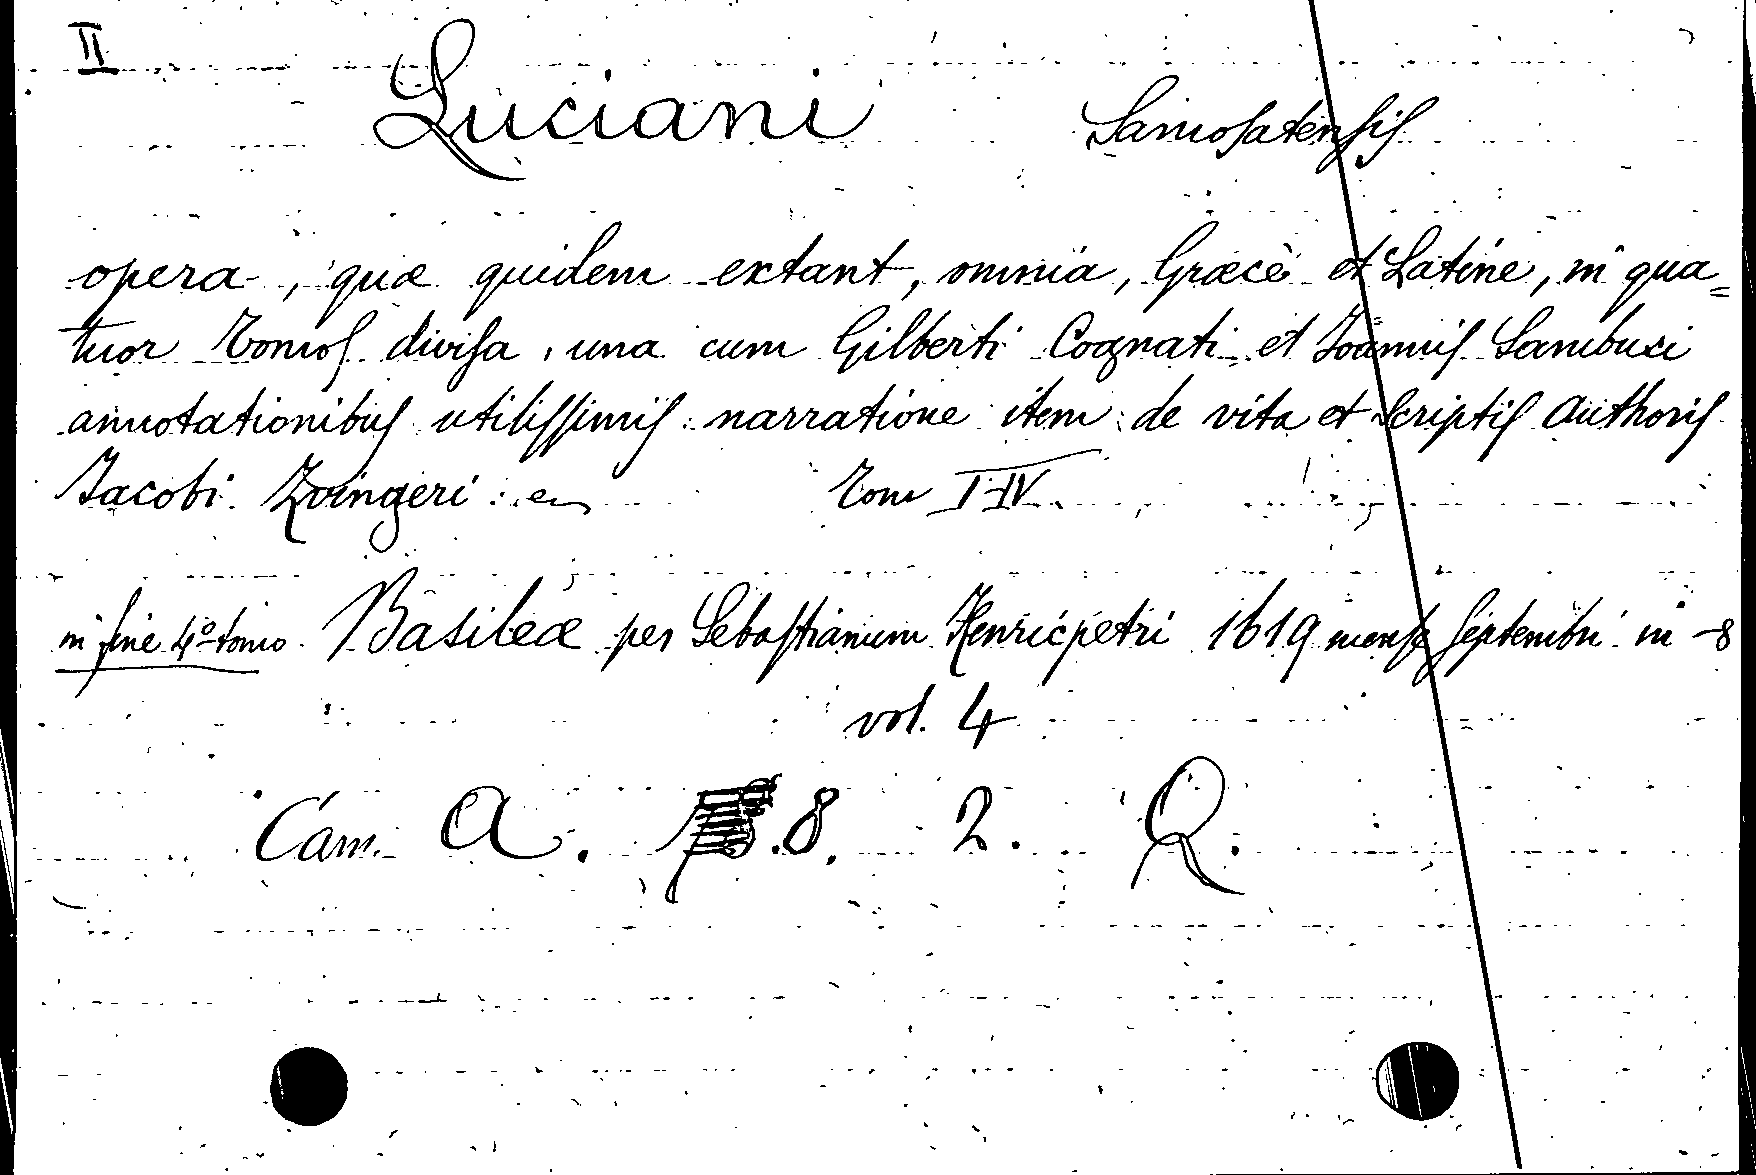 II
Luciani Samosatensis
opera, quæ quidem extant, omnia, Græcè et Latine, in qua=
tuor Tomos divisa, una cum Gilberti Cognati et Joannis Sambuci
annotationibus utilissimis: narratione item de vita et scriptis Authoris
Jacobi Zvingeri: Tom I-IV.
in fine 4º tomo. Basileæ per Sebastianum Henricpetri 1619 mense Septembri in -8
vol. 4
Cam. A. 8. 2. Q.